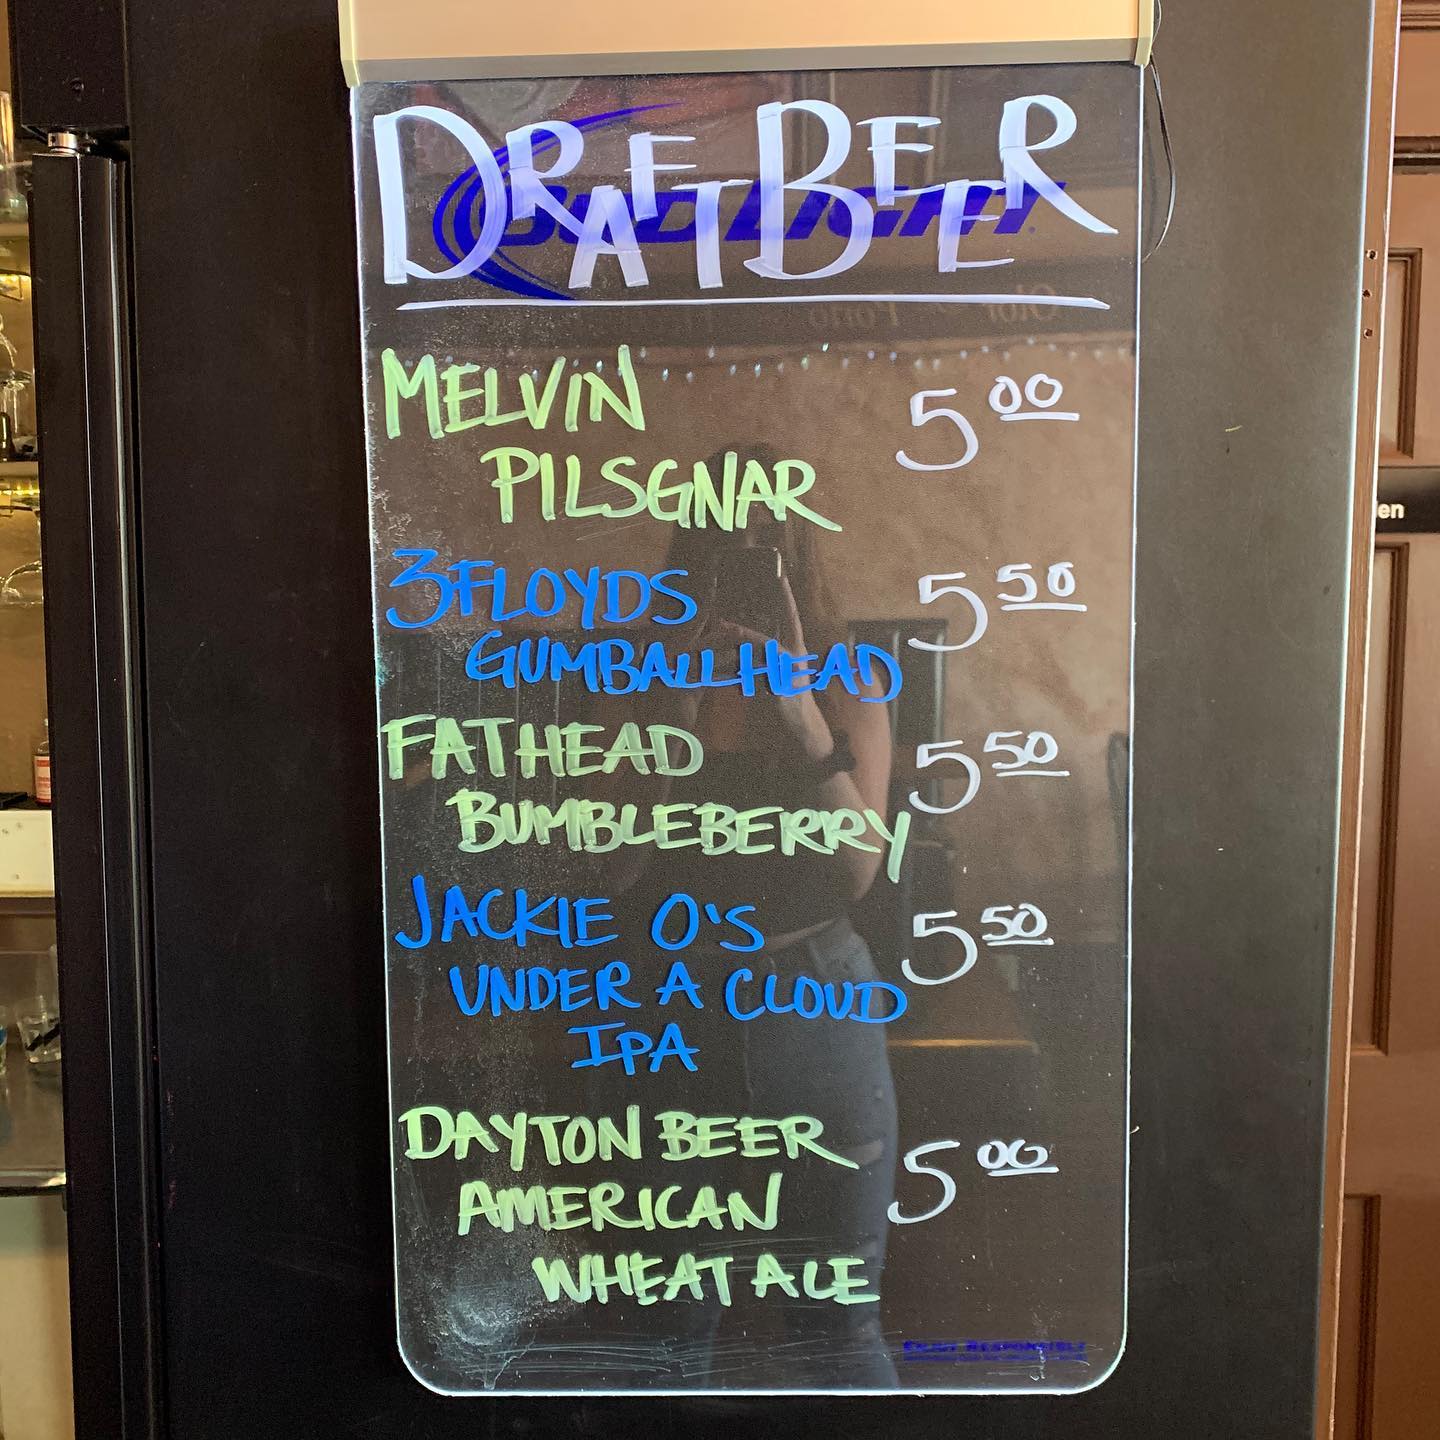 DRAFT BEER
BUD LIGHT
MELVIN
PILSGNAR
5 00
3 FLOYDS
GUMBALLHEAD
5 50
FATHEAD
BUMBLEBERRY
5 50
JACKIE O'S
UNDER A CLOUD
IPA
5 50
DAYTON BEER
AMERICAN
WHEAT ALE
5 00
ENJOY RESPONSIBLY
en